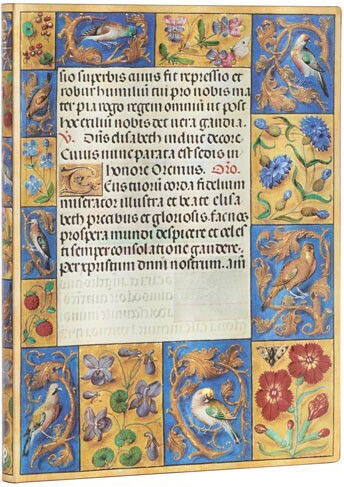 sio superbis aiuus fit repressio et
robur humilium tui pro nobis ma
ter pia rogo regem omnium ut post
hoc exilium nobis det uera gaudia.
V. Diis elisabeth induit decore.
Cuius innie parata est sedis in
honore Oremus. Oro.
tuorum corda fidelium
miserator illustra et beate elisa
beth precibus et gloriosis fac nos
prospera mundi despicere et celes
ti semper consolatione gaudere.
Per xpristum dnm nostrum. am